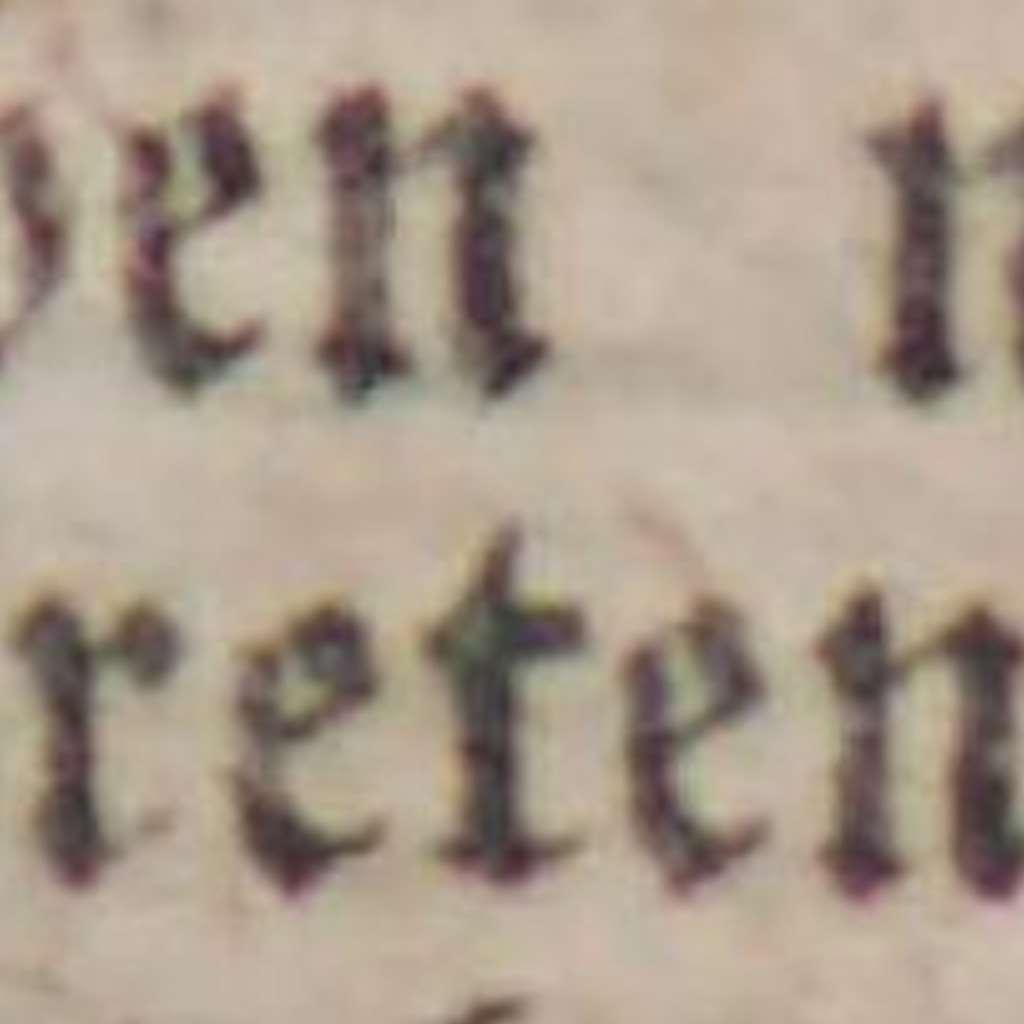 en
reten